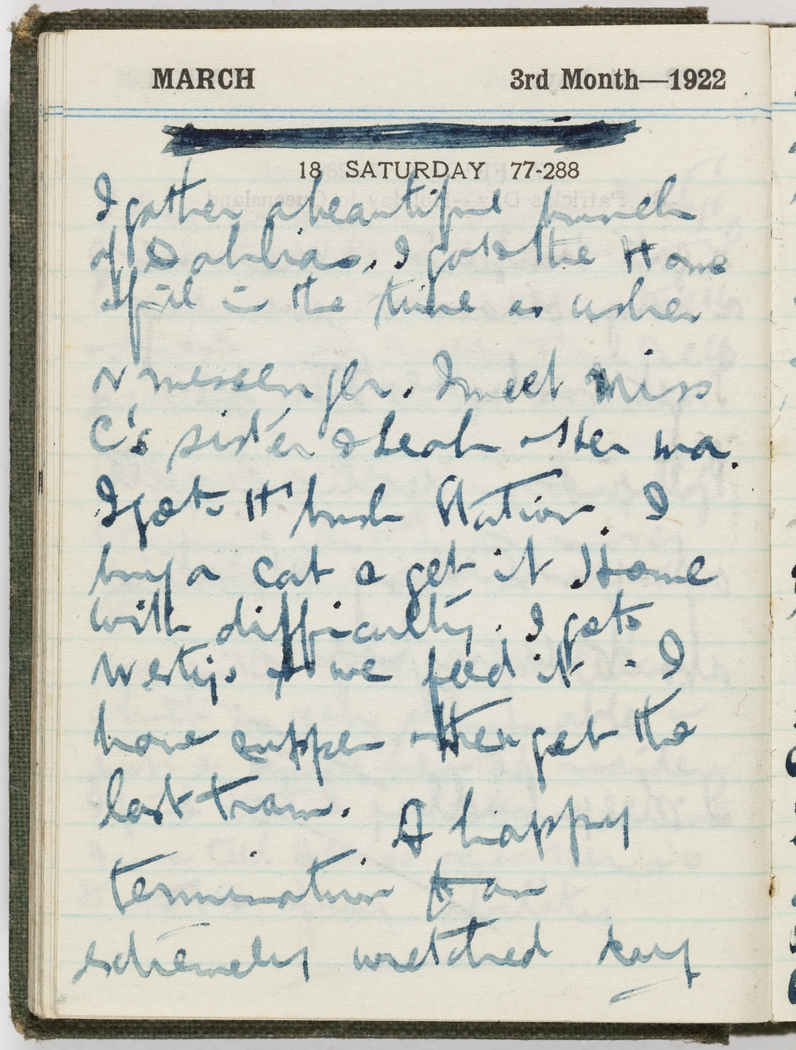 MARCH 3rd Month—1922
18 SATURDAY 77-288
I gather a beautiful bunch
of Dahlias. I go to the Home
& fill in the time as usher
or messenger. I meet Miss
C's sister & Leah & her ma.
I go to H' bush Station. I
buy a cat & get it Home
with difficulty. I go to
& we feed it. I
have supper & then get the
last tram. A happy
termination to an
extremely wretched day